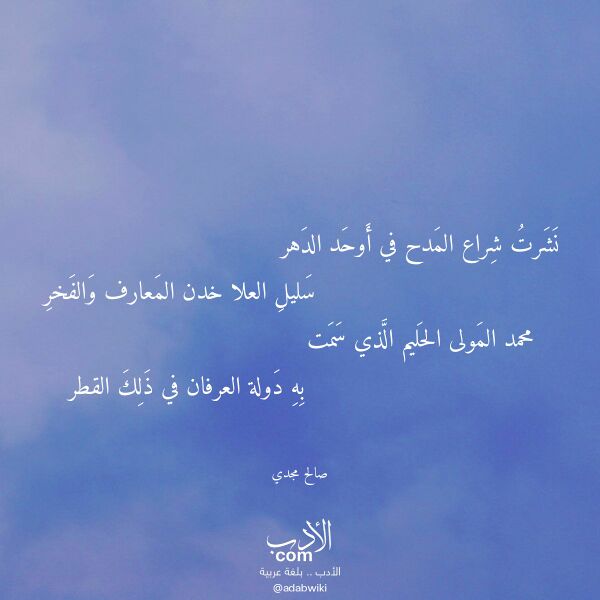 نَشَرتُ شِراع المَدح في أَوحَد الدَهر
سَليلِ العلا خدن المَعارف وَالفَخرِ
محمد المَولى الحَليم الَّذي سَمَت
بِهِ دَولة العرفان في ذَلِكَ القطر
صالح مجدي
الأدب
com
الأدب .. بلغة عربية
@adabwiki